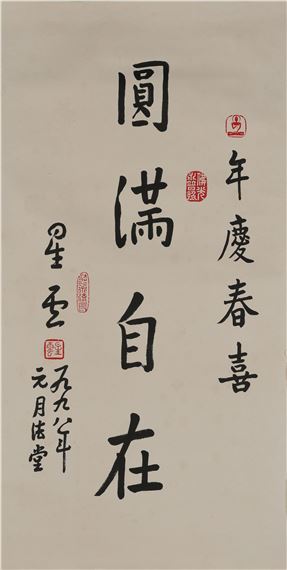 年慶春喜
圓滿自在
星雲
一九九八年
元月法堂